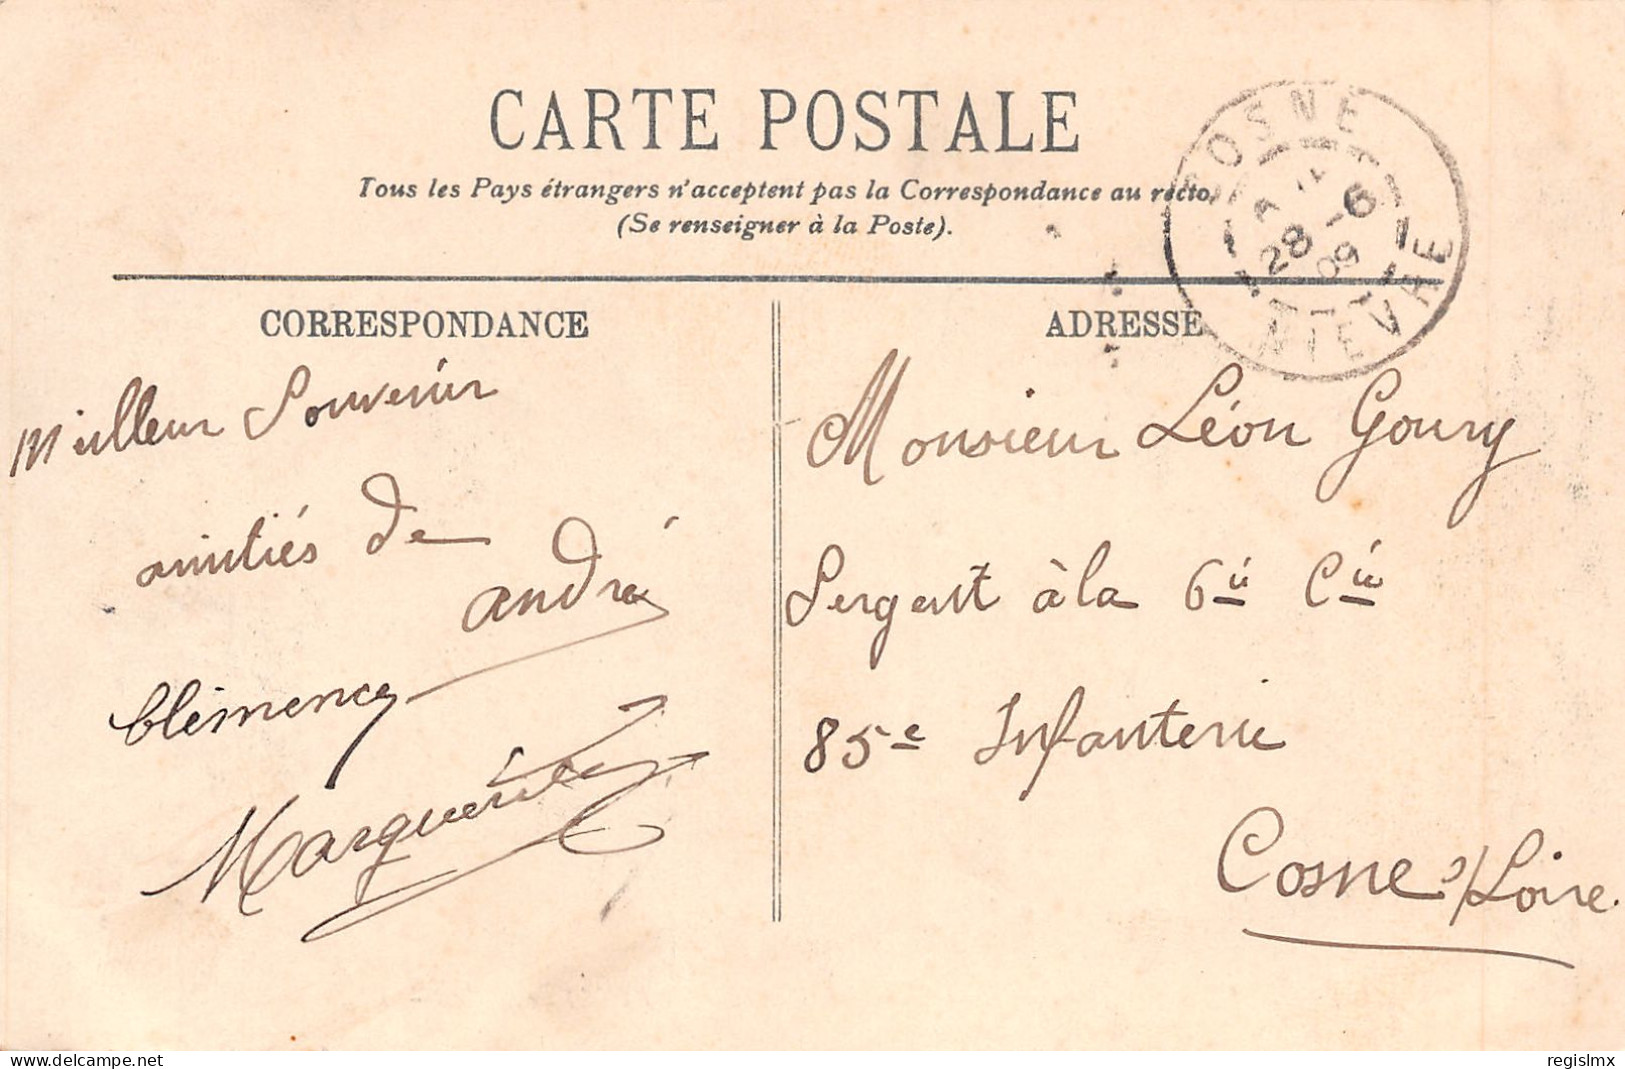 CARTE POSTALE
Tous les Pays étrangers n'acceptent pas la Correspondance au recto,
(Se renseigner à la Poste).
COSNE
28 - 6
09
NIEVRE
CORRESPONDANCE
Meilleur Souvenir
amitiés de
andré
Clémence
Marguerite
ADRESSE
Monsieur Léon Goury
Sergent à la 6ie Cie
85e Infanterie
Cosne s/Loire.
www.delcampe.net
regislmx